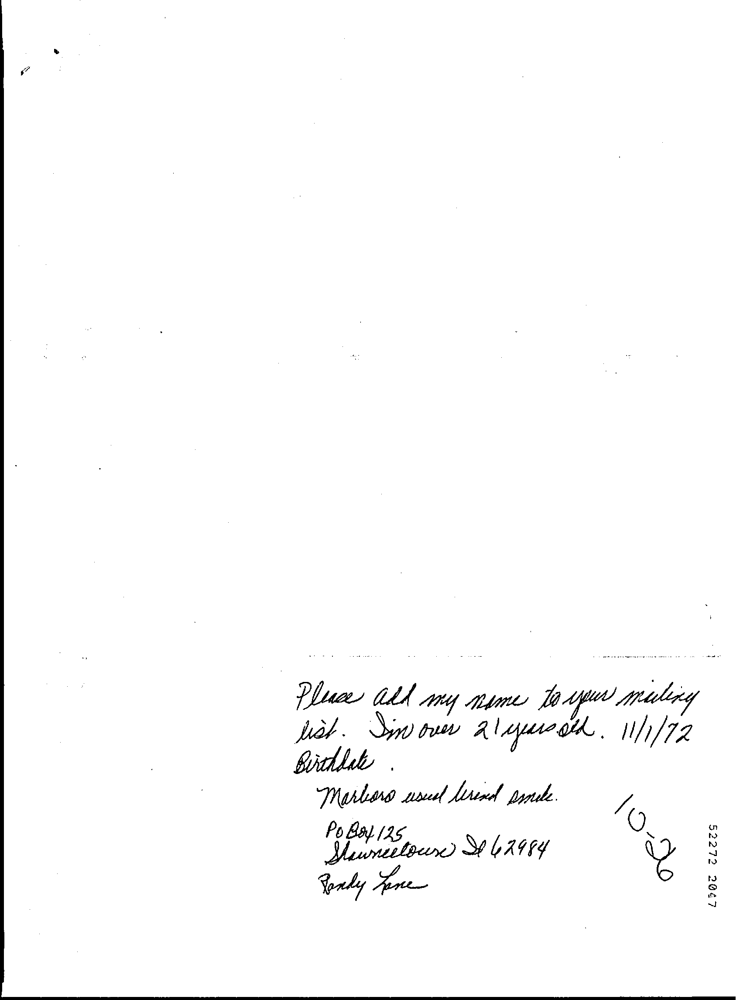 Please add my name to your mailing
list. I'm over 21 years old. 11/1/72
Birthdate.
Marlboro usual brand smoke.
PO Box 125
Shawneetown Il 62984
Randy Lane
10-26
52272 2047